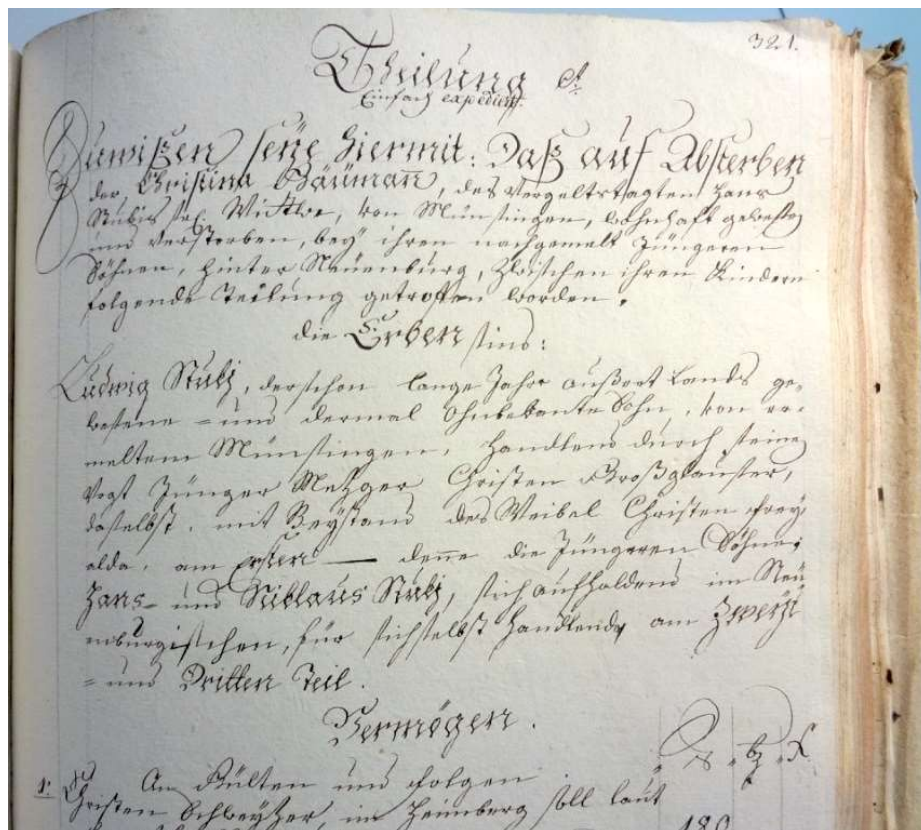 321.
Theilung
Einfach expediert.
Zuwißen seye hiermit: Daß auf Absterben
der Christina Bäuman, des Vergeltstagten Hans
Stubis sel. Wittwe, von Münsingen, wohnhaft gewesten
und verstorben, bey ihren nachgemelt Jüngeren
Söhnen, hinter Neüenburg, zwischen ihren Kindern
folgende Teilung getroffen worden.
die Erben sind:
Ludwig Stubj, der schon lange Jahr außert Lands ge-
westene = und dermal Ohnbekante Sohn, von er-
meltem Münsingen, Handlend durch seinen
Vogt Jünger Metzger Christen Großglauser,
daselbst, mit Beystand des Weibel Christen Frey
alda, am Ersten — denne die Jüngeren Söhne;
Hans- und Niklaus Stubj, sich aufhaldend im Neü-
enburgischen, für sich selbst Handlende, am Zweyt
= und Dritten Teil.
Vermögen.
bz
1. An Gülten und folgen
Christen Schweytzer, im Heimberg soll laut
180